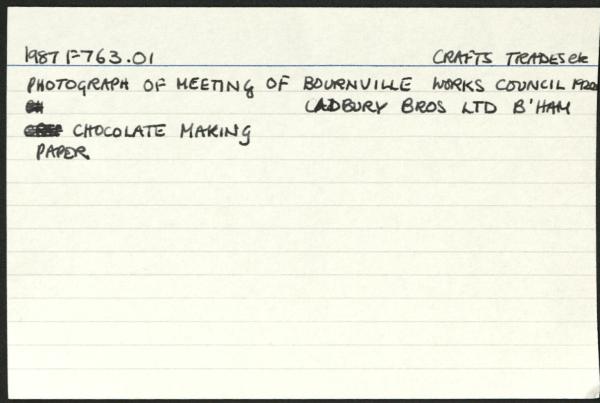 1987 F763.01 CRAFTS TRADES etc
PHOTOGRAPH OF MEETING OF BOURNVILLE WORKS COUNCIL 1920
CADBURY BROS LTD B'HAM
CHOCOLATE MAKING
PAPER